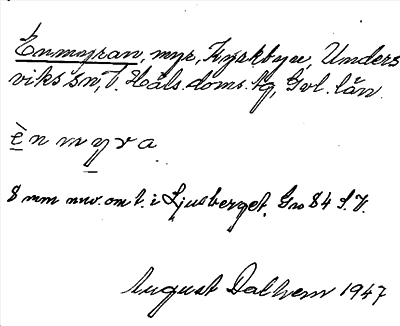 Enmyran, myr, Kyrkbyn, Unders
viks sn, V. Häls. doms. sg, Gvl. län.
ènmyra
8 mm nnv. om t. i Ljusberget. Gro 84 S.V.
August Dalhem 1947